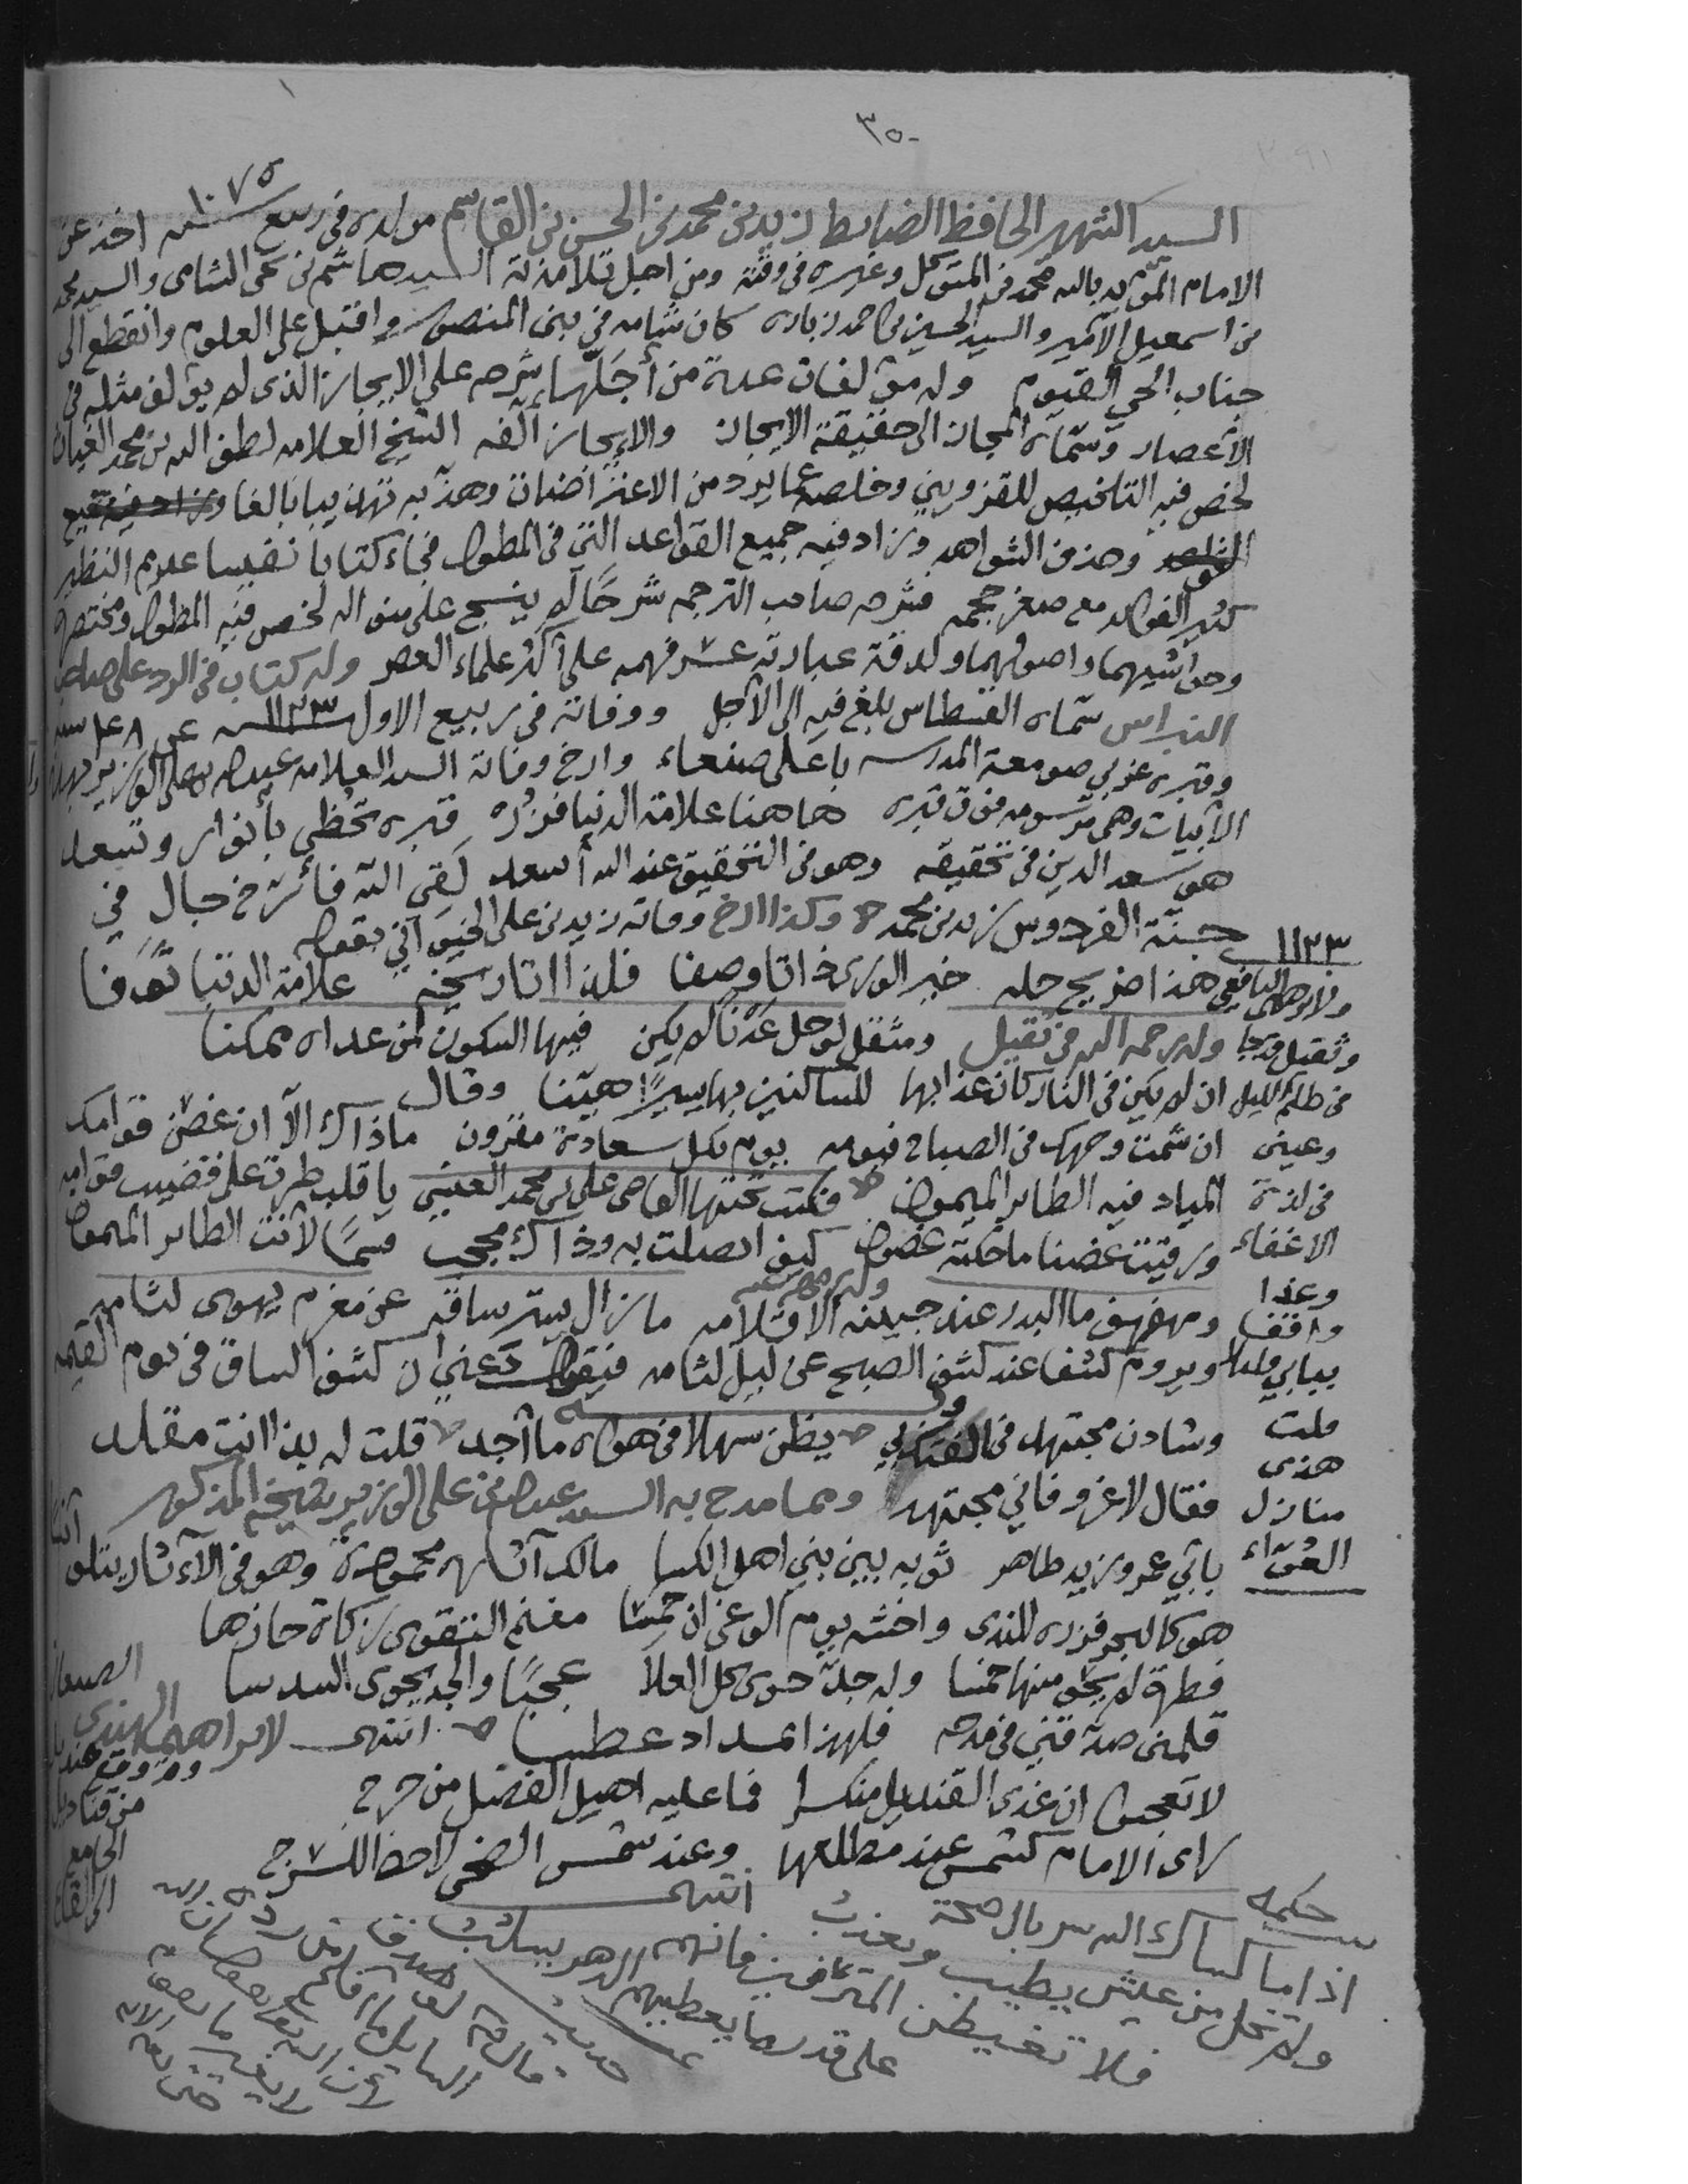 ٣٥٠
السيد الشهير الحافظ الضابط زيد بن محمد بن الحسن بن القاسم مولده في ربيع سنه ١٠٧٥ اخذ عن
الامام المؤيد بالله محمد بن المتوكل وغيره في وقته ومن اجل تلامذته السيد هاشم بن يحيى الشامي والسيد محمد
بن اسمعيل الامير والسيد الحسين بن احمد زباره كان شامه في بني المنصور واقبل على العلوم وانقطع الى
جناب الحي القيوم وله مؤلفات عدة من أجَلّها شرحه على الايجاز الذي لم يؤلف مثله في
الأعصار وسمّاه المجاز الى حقيقة الايجاز والايجاز ألفه الشيخ العلامه لطف الله بن محمد الغياث
لخص فيه التلخيص للقزويني وخلصه عما يرد من الاعتراضات وهذّبه تهذيبا بالغا وزاد فيه
وحذف الشواهد وزاد فيه جميع القواعد التي في المطول فجاء كتابا نفيسا عديم النظير
كثير الفوائد مع صغر حجمه فشرحه صاحب الترجمه شرحًا لم ينسج على منواله لخص فيه المطول ومختصره
وحواشيهما واصولهما ولدقة عبارته عسر فهمه على أكثر علماء العصر وله كتاب في الرد على صاحب
النبراس سمّاه القسطاس بلغ فيه الى الأجل ووفاته في ربيع الاول سنه ١١٢٣ عن ٤٨ سنه
وقبره غربي صومعة المدرسه باعلى صنعاء وارخ وفاته السيد العلامه عبدالله بن علي الوزير بهذه
الأبيات وهي مرسومه فوق قبره هاهنا علامة الدنيا فزُره قبره تحظى بأنوار وتسعد
هو سعد الدين في تحقيقه وهو في التحقيق عند الله أسعد لَقي الله فأرّخ حال في
جنّة الفردوس زيد بن محمد وكذا ارخ وفاته زيد بن علي الخيواني بقوله
١١٢٣
هذا ضريح حله خير الورى ذاتا وصفا فلذا اتا تاريخه علامة الدنيا توفا
وله رحمه الله في ثقيل ومثقل لو حل عدنًا لم يكن فيها السكون لمن عداه ممكنا
ان لم يكن في النار كان عذابها للساكنين بها يسيرًا هيّنا وقال
ان شمت وجهك في الصباح فيومه يوم بكل سعادة مقرون ماذاك الآ ان غصن قوامك
المياد فيه الطاير الميمون فكتب تحتها القاضي علي بن محمد العنسي يا قلب طرت على قضيب قوامه
ورقيت غصنا ما حكته غصون كيف اتصلت به وذاك محجب قسمًا لأنت الطاير الميمون
ومهفهف ما البدر عند جبينه الا قلامه ما زال يستر ساقه عن مغرم يهوى لثامه
ويروم كشفا عند كشف الصبح عن ليل لثامه فيقول دعني ان كشف الساق في يوم القيمه
وله
وشادن مجتهد في يظن سهلا في هواه ما أجد قلت له بذا انت مقلد
فقال لا غرو فاني مجتهد ومما مدح به السيد عبدالله بن علي الوزير شيخه المذكور
بأبي عمرو زيد طاهر ثوبه بين بني اهل الكسا مالك آثاره محمودة وهو في الآثار يتلو أنسا
هو كالبحر فزره للندى واخشه يوم الوغى ان حمسا مغنم التقوى زكاة حازها
فطرة لم يحو منها خمسا وله جدّ حوى كل العلا عجبًا والجد يحوى السدسا
قلمي صدقني في مدحه فلهذا بمداد عطسا انتهى لابراهيم الهندي
وقد وقع قنديل من قناديل الجامع الى القاع
لا تعجبوا ان غدى القنديل منكسرا فما عليه اهيل الفضل من حرج
رأى الامام كشمس عند مطلعها وعند شمس الضحى لاحظ للسرج
انتهى
حكمه
اذا ما كساك الله سربال صحة
ولم تخل من عيش يطيب ويعذب
فلا تغبطن المترفين فانهم
على قدر ما يعطيهم الدهر يسلب
في ظلم الليل
وعيني
في لذة
الاغفاء
وغدا
واقفا
ببابي
قلت
هذي
منازل
العُوّاء